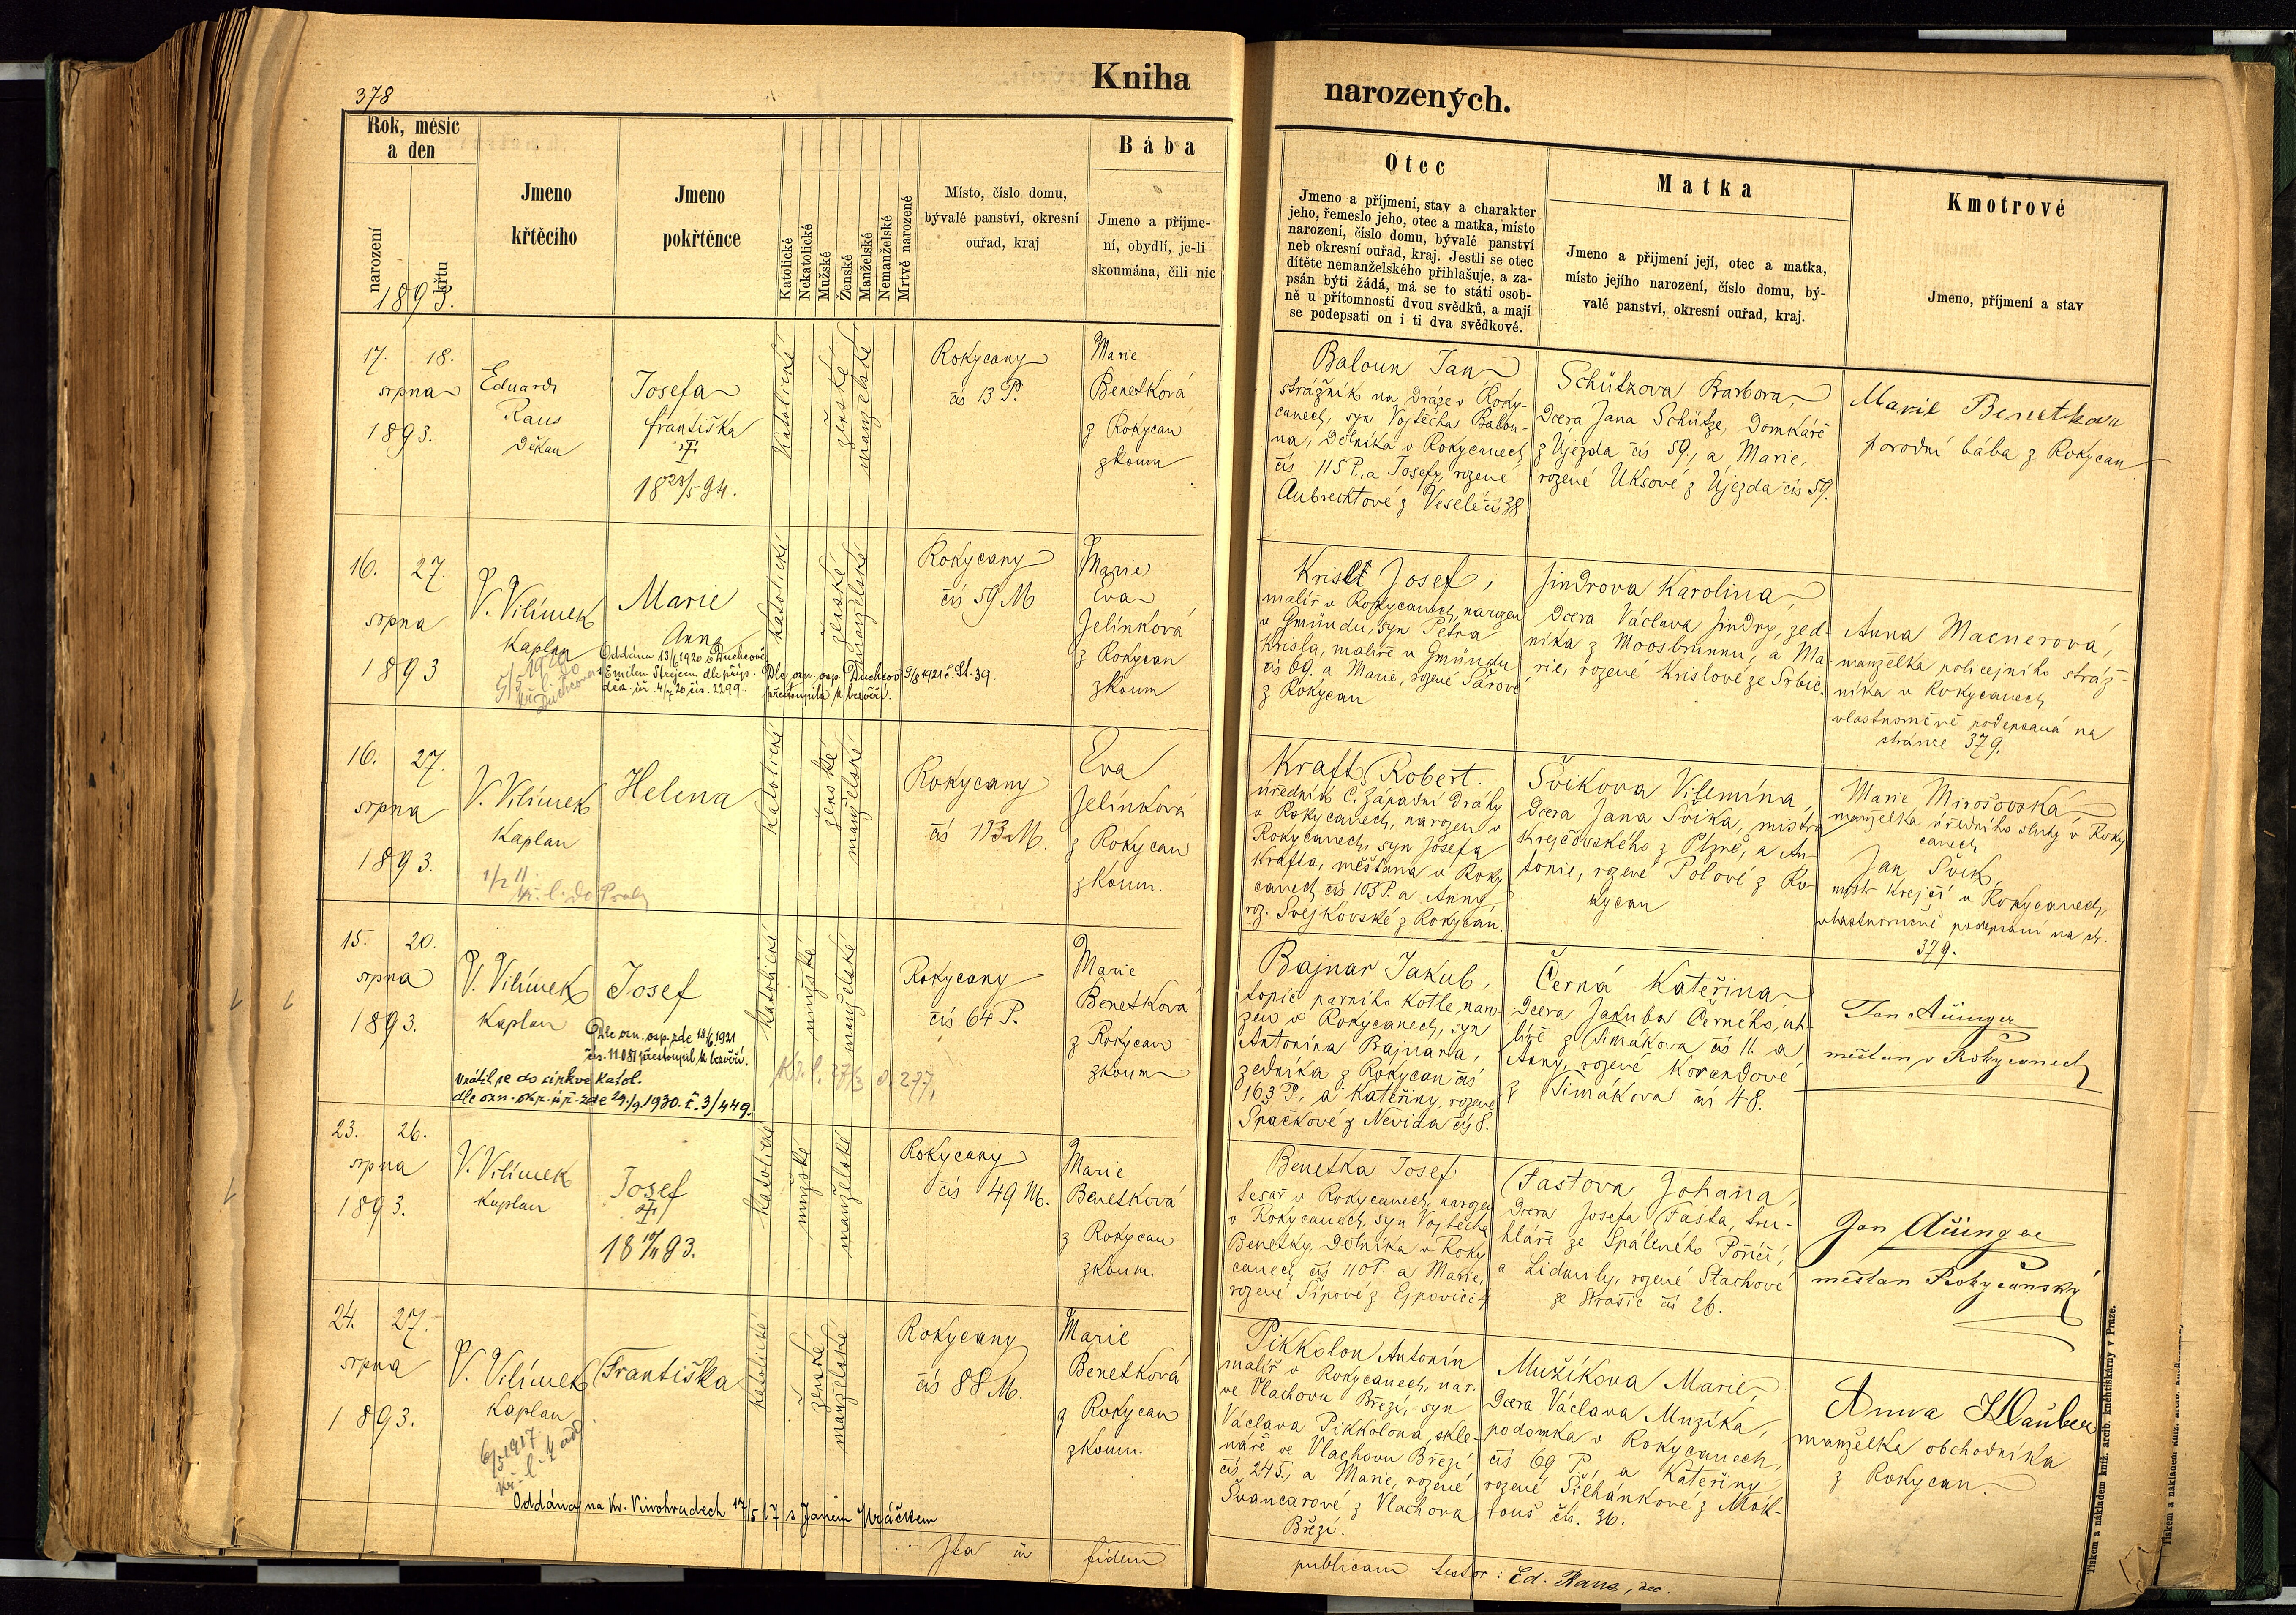 378
Kniha
narozených.
Rok, měsíc
a den
narození
křtu
1893.
Jmeno
křtěcího
Jmeno
pokřtěnce
Katolické
Nekatolické
Mužské
Ženské
Manželské
Nemanželské
Mrtvě narozené
Místo, číslo domu,
bývalé panství, okresní
ouřad, kraj
Bába
Jmeno a příjme-
ní, obydlí, je-li
skoumána, čili nic
Otec
Jmeno a příjmení, stav a charakter
jeho, řemeslo jeho, otec a matka, místo
narození, číslo domu, bývalé panství
neb okresní ouřad, kraj. Jestli se otec
dítěte nemanželského přihlašuje, a za-
psán býti žádá, má se to státi osob-
ně u přítomnosti dvou svědků, a mají
se podepsati on i ti dva svědkové.
Matka
Jmeno a přijmení její, otec a matka,
místo jejího narození, číslo domu, bý-
valé panství, okresní ouřad, kraj.
Kmotrové
Jmeno, příjmení a stav
17. 18.
srpna
1893.
Eduard
Raus
Děkan
Josefa
františka
18 23/5 94.
Katolické
ženské
manželské
Rokycany
čís 13 P.
Marie
Benetková
z Rokycan
zkoum
Baloun Jan
strážník na dráze v Roky-
canech, syn Vojtěcha Balou-
na, dělníka v Rokycanech
čís 115 P., a Josefy, rozené
Aubrechtové z Veselé čís 38
Schützova Barbora,
dcera Jana Schütze, domkáře
z Újezda čís 59., a Marie,
rozené Uksové z Újezda čís 57.
Marie Benetkova
porodní bába z Rokycan
16. 27.
srpna
1893
V. Vilímek
Kaplan
Marie
Anna
Oddána 13/6 1920 v Duchcově
s Emilem Strejcem dle příp.
Katolické
ženské
manželské
přestoupila k bezvěří.
Rokycany
čís 59 M
Marie
Eva
Jelínková
z Rokycan
zkoum
Krislt Josef,
malíř v Rokycanech, narozen
v Gmündu, syn Petra
Krisla, malíře v Gmündu
čís 69. a Marie, rozené Šárové
z Rokycan
Jindrova Karolina,
dcera Václava Jindry, zed-
níka z Moosbrunnu, a Ma-
rie, rozené Krislové ze Srbic.
Anna Macnerová,
manželka policejního stráž-
níka v Rokycanech
vlastnoručně podepsaná na
stránce 379.
16. 27.
srpna
1893.
V. Vilímek
Kaplan
Helena
Katolické
ženské
manželské
Rokycany
čís 113 M.
Eva
Jelínková
z Rokycan
zkoum.
Kraft Robert.
úředník č. západní dráhy
v Rokycanech, narozen v
Rokycanech, syn Josefa
Krafta, měšťana v Roky
canech čís 103 P. a Anny
roz. Svejkovské z Rokycan.
Švikova Vilemína,
dcera Jana Švika, mistra
krejčovského z Plzně, a An-
tonie, rozené Polové z Ro-
kycan
Marie Mirošovská
manželka úředního sluhy v Roky
canech
Jan Švik,
mistr krejčí v Rokycanech,
vlastnoručně podepsáni na str.
379.
15. 20.
srpna
1893.
V. Vilímek
Kaplan
Josef
Dle ozn. osp. zde 18/6 1921
čís. 11.081 přestoupil k bezvěří.
Vrátil se do církve katol.
dle ozn. okr. úř. zde 29./9 1930. č. 3/449.
Katolické
mužské
manželské
Rokycany
čís 64 P.
Marie
Benetková
z Rokycan
zkoum
Bajnar Jakub,
topič parního kotle, naro-
zen v Rokycanech, syn
Antonína Bajnara,
zedníka z Rokycan čís
163 P., a Kateřiny, rozené
Špačkové z Nevida čís 8.
Černá Kateřina
dcera Jakuba Černého, uh-
líře z Timákova čís 11. a
Anny, rozené Korandové
z Timákova čís 48.
Jan Aüinger
měšťan v Rokycanech
23. 26.
srpna
1893.
V. Vilímek
Kaplan
Josef
18 17/11 93.
Katolické
mužské
manželské
Rokycany
čís 49 M.
Marie
Benetková
z Rokycan
zkoum.
Benetka Josef
tesař v Rokycanech, narozen
v Rokycanech, syn Vojtěcha
Benetky, dělníka v Roky
canech čís 110 P. a Marie,
rozené Šípové z Ejpovic č 4
Fastova Johana,
dcera Josefa Fasta, tru-
hláře ze Spáleného Poříčí,
a Lidmily, rozené Stachové
ze Strašic čís 26.
Jan Aüinger
měšťan Rokycanský
24. 27.
srpna
1893.
V. Vilímek
Kaplan
Františka
Oddána na Kr. Vinohradech 17/5 17 s Janem Hráčkem
katolické
ženské
manželské
Rokycany
čís 88 M.
Marie
Benetková
z Rokycan
zkoum.
Pikkolon Antonín
malíř v Rokycanech, nar.
ve Vlachovu Březí, syn
Václava Pikkolona, skle-
náře ve Vlachovu Březí
čís 245., a Marie, rozené
Švancarové z Vlachova
Březí.
Mužíkova Marie,
dcera Václava Mužíka,
podomka v Rokycanech,
čís 69 P., a Kateřiny
rozené Šilhánkové z Mokl-
rous čís. 36.
Anna Hauber
manželka obchodníka
z Rokycan.
Ita in fidem
publicam testor: Ed. Raus, dec.
Tiskem a nákladem kníž. arcib. knihtiskárny v Praze.